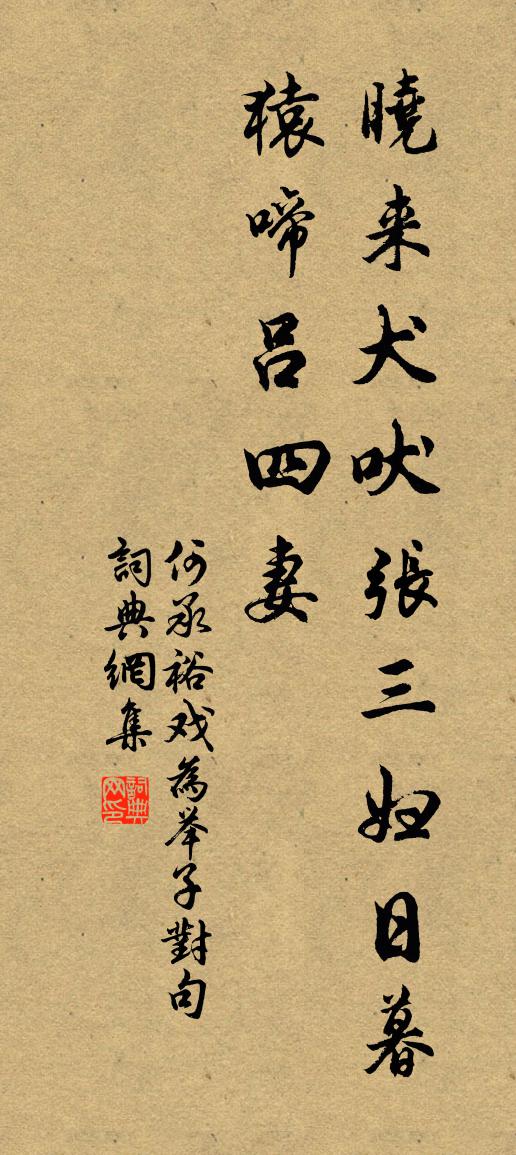 曉来犬吠張三妇日暮
猿啼呂四妻
何承裕戏為举子對句
詞典網集
詞典网印